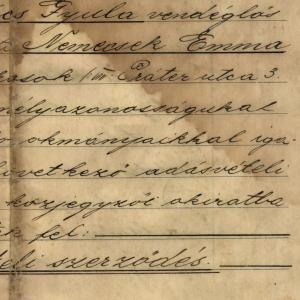 cs Gyula vendéglős
Nemecsek Emma
kosok VIII. Práter utca 3.
mélyazonosságukat
okmányaikkal iga-
következő adásvételi
közjegyzői okiratba
fel:
teli szerződés.